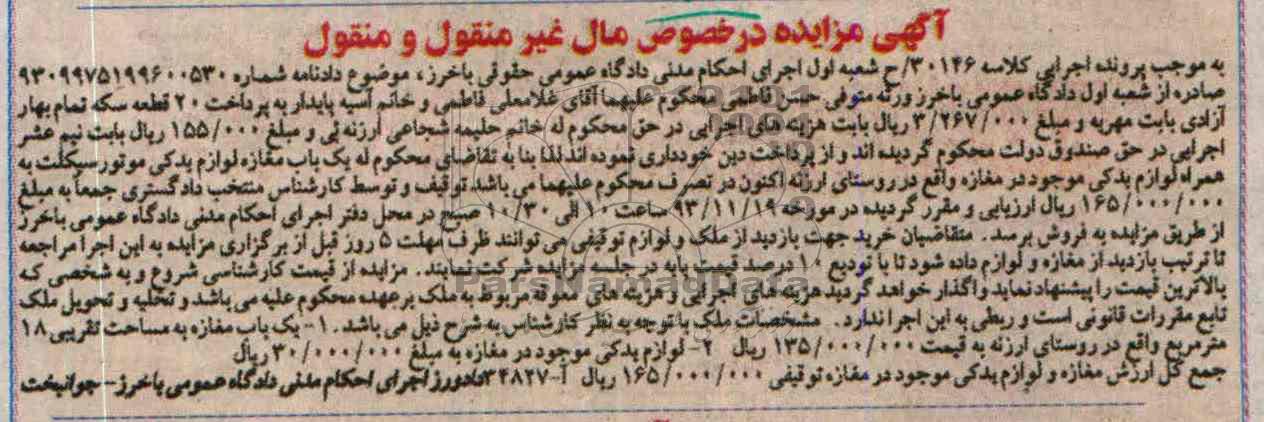 آگهی مزایده درخصوص مال غیر منقول و منقول
به موجب پرونده اجرایی کلاسه ۳۰۱۴۶/ح شعبه اول اجرای احکام مدنی دادگاه عمومی حقوقی باخرز، موضوع دادنامه شماره ۹۳۰۹۹۷۵۱۹۹۶۰۰۵۳۰
صادره از شعبه اول دادگاه عمومی باخرز ورثه متوفی حسن فاطمی محکوم علیهما آقای غلامعلی فاطمی و خانم آسیه پایدار به پرداخت ۲۰ قطعه سکه تمام بهار
آزادی بابت مهریه و مبلغ ۳/۲۶۷/۰۰۰ ریال بابت هزینه های اجرایی در حق محکوم له خانم حلیمه شجاعی ارزنه ئی و مبلغ ۱۵۵/۰۰۰ ریال بابت نیم عشر
اجرایی در حق صندوق دولت محکوم گردیده اند و از پرداخت دین خودداری نموده اند لذا بنا به تقاضای محکوم له یک باب مغازه لوازم یدکی موتورسیکلت به
همراه لوازم یدکی موجود در مغازه واقع در روستای ارزنه اکنون در تصرف محکوم علیهما می باشد توقیف و توسط کارشناس منتخب دادگستری جمعاً به مبلغ
۱۶۵/۰۰۰/۰۰۰ ریال ارزیابی و مقرر گردیده در مورخه ۹۳/۱۱/۱۹ ساعت ۱۰ الی ۱۰/۳۰ صبح در محل دفتر اجرای احکام مدنی دادگاه عمومی باخرز
از طریق مزایده به فروش برسد. متقاضیان خرید جهت بازدید از ملک و لوازم توقیفی می توانند ظرف مهلت ۵ روز قبل از برگزاری مزایده به این اجرا مراجعه
تا ترتیب بازدید از مغازه و لوازم داده شود تا با تودیع ۱۰ درصد قیمت پایه در جلسه مزایده شرکت نمایند. مزایده از قیمت کارشناسی شروع و به شخصی که
بالاترین قیمت را پیشنهاد نماید واگذار خواهد گردید هزینه های اجرایی و هزینه های معوقه مربوط به ملک برعهده محکوم علیه می باشد و تخلیه و تحویل ملک
تابع مقررات قانونی است و ربطی به این اجرا ندارد. مشخصات ملک با توجه به نظر کارشناس به شرح ذیل می باشد. ۱- یک باب مغازه به مساحت تقریبی ۱۸
مترمربع واقع در روستای ارزنه به قیمت ۱۳۵/۰۰۰/۰۰۰ ریال ۲- لوازم یدکی موجود در مغازه به مبلغ ۳۰/۰۰۰/۰۰۰ ریال
جمع کل ارزش مغازه و لوازم یدکی موجود در مغازه توقیفی ۱۶۵/۰۰۰/۰۰۰ ریال آ-۳۴۸۲۷ دادورز اجرای احکام مدنی دادگاه عمومی باخرز - جوانبخت
ParsNamadData